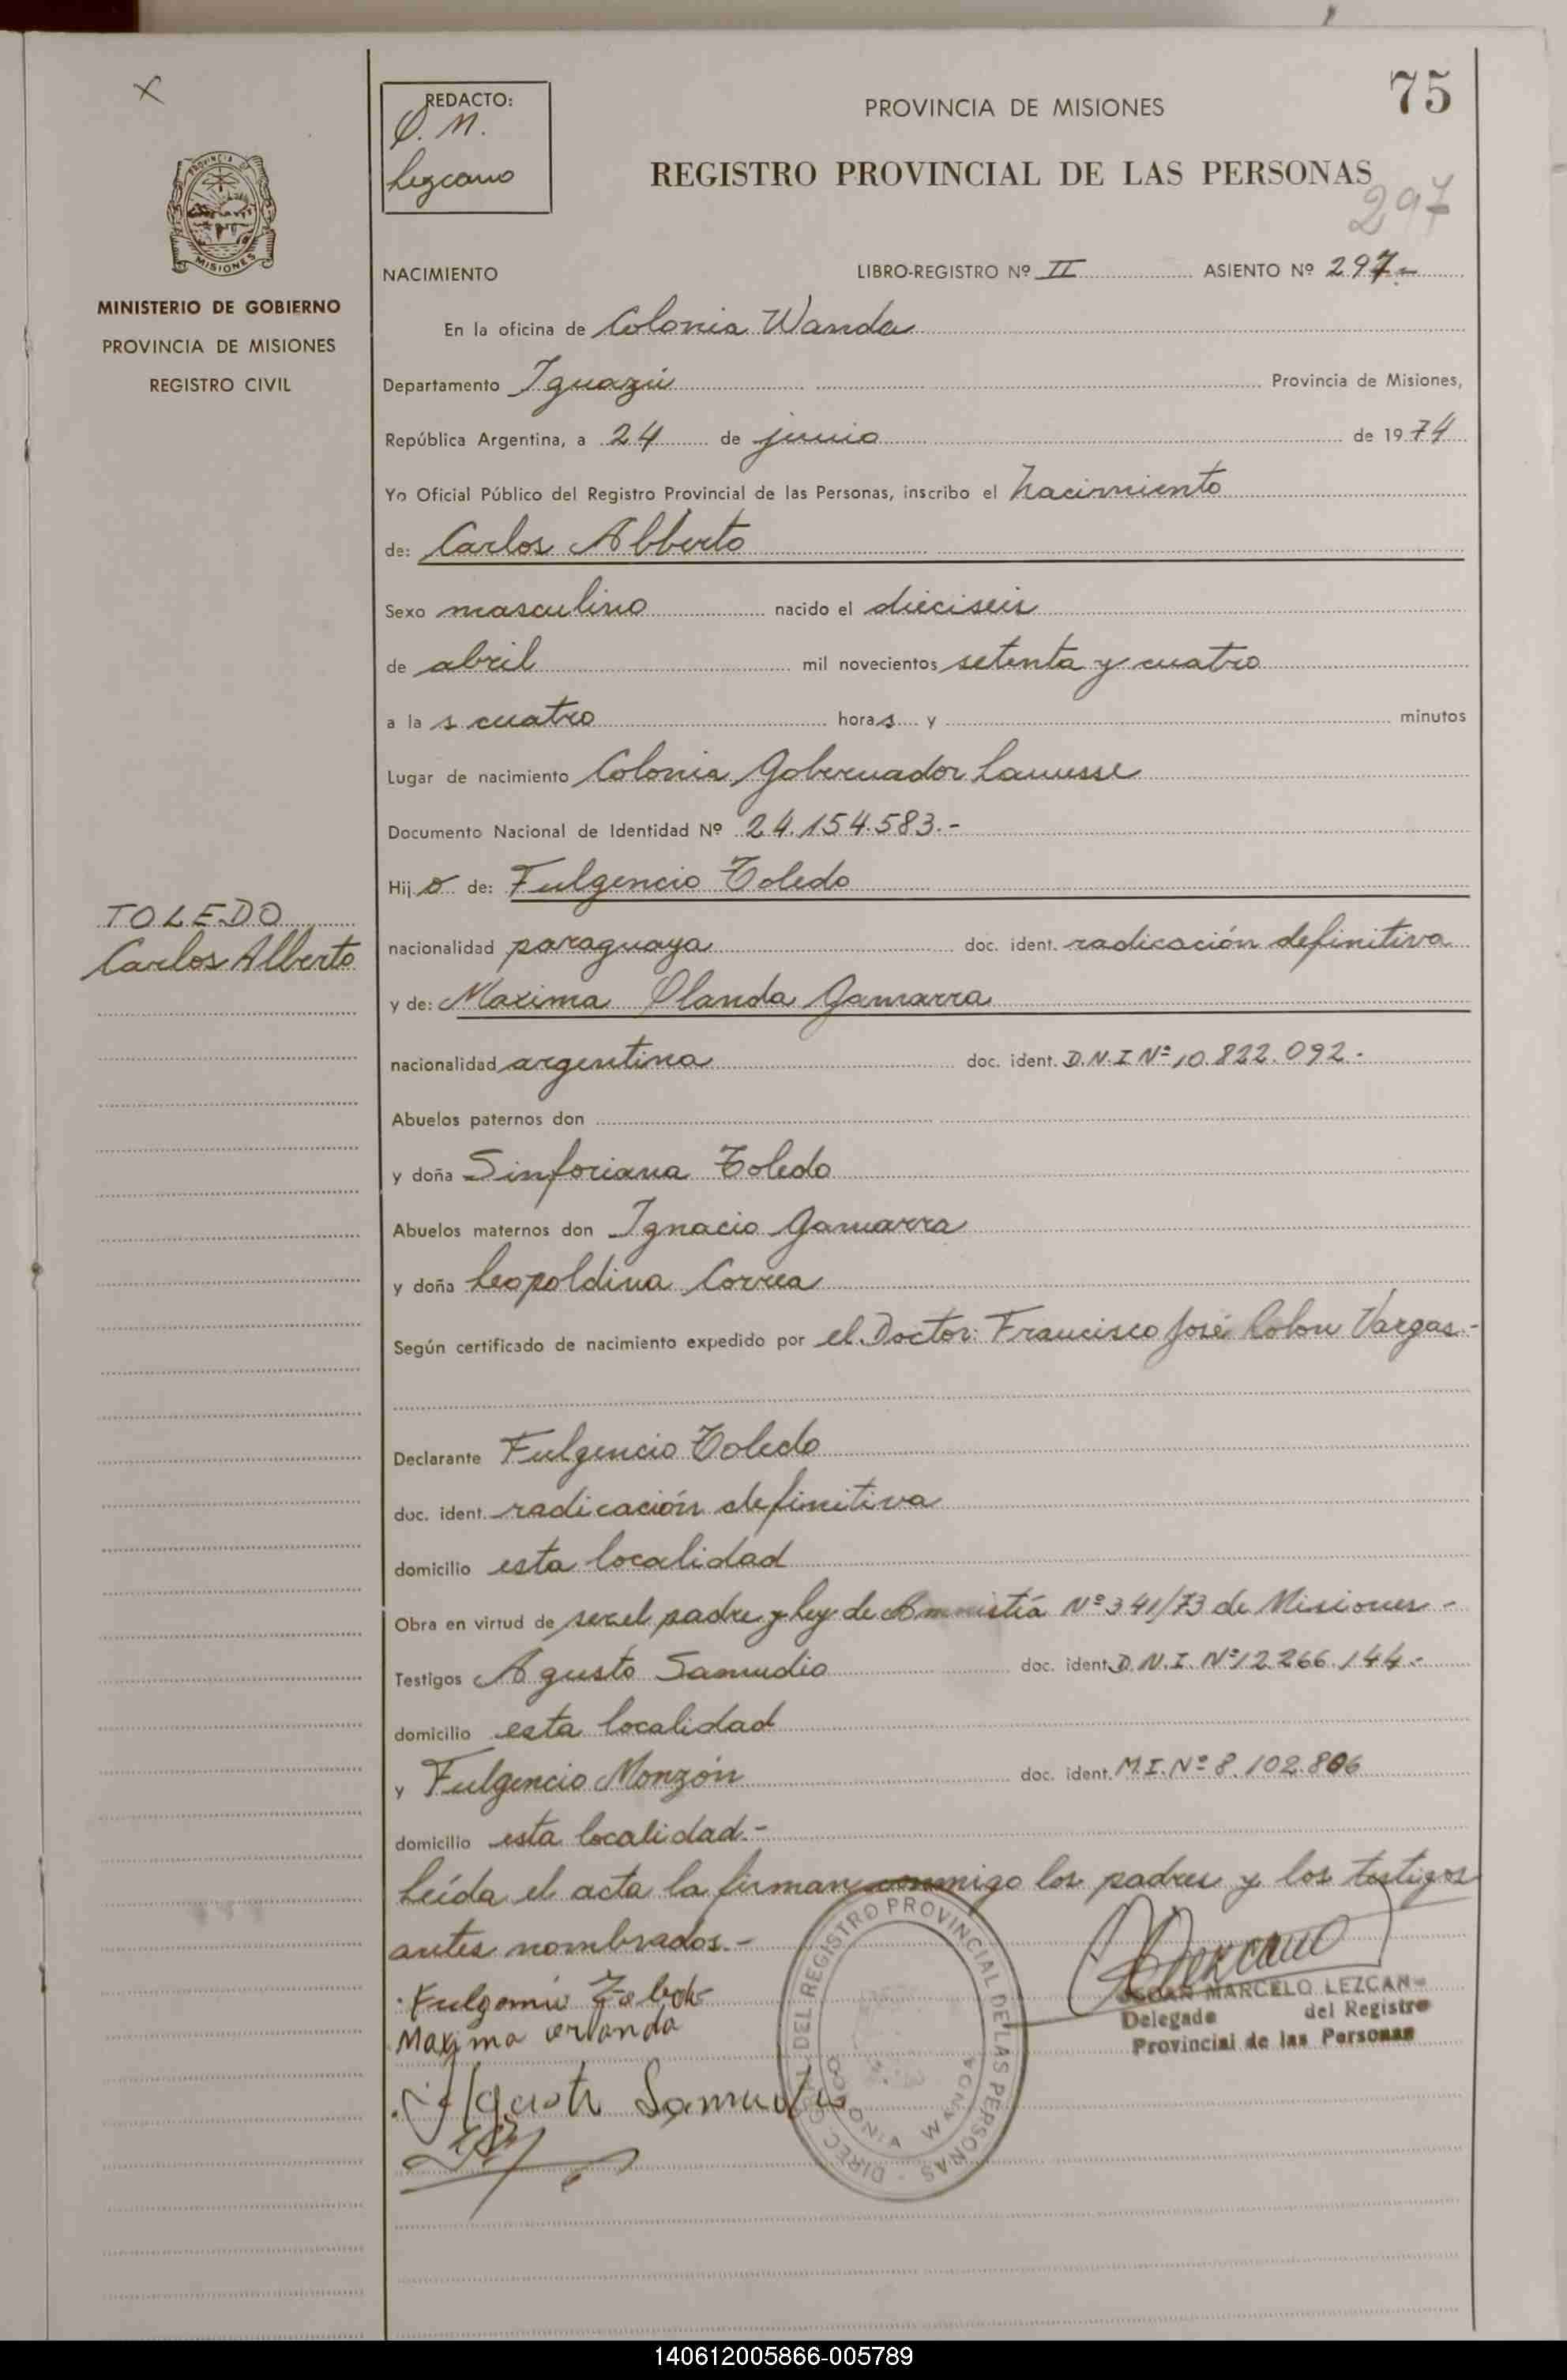 75
REDACTO:
O. M.
Lezcano
PROVINCIA DE MISIONES
REGISTRO PROVINCIAL DE LAS PERSONAS
297
PROVINCIA DE
MISIONES
MINISTERIO DE GOBIERNO
PROVINCIA DE MISIONES
REGISTRO CIVIL
NACIMIENTO LIBRO-REGISTRO Nº II ASIENTO Nº 297.-
En la oficina de Colonia Wanda
Departamento Iguazú Provincia de Misiones,
República Argentina, a 24 de junio de 1974
Yo Oficial Público del Registro Provincial de las Personas, inscribo el Nacimiento
de: Carlos Alberto
Sexo masculino nacido el dieciseis
de abril mil novecientos setenta y cuatro
a la s cuatro horas y minutos
Lugar de nacimiento Colonia Gobernador Lanusse
Documento Nacional de Identidad Nº 24.154.583.-
Hijo de: Fulgencio Toledo
TOLEDO
Carlos Alberto
nacionalidad paraguaya doc. ident. radicación definitiva
y de: Maxima Olanda Gamarra
nacionalidad argentina doc. ident. D.N.I Nº 10.822.092.-
Abuelos paternos don
y doña Sinforiana Toledo
Abuelos maternos don Ignacio Gamarra
y doña Leopoldina Correa
Según certificado de nacimiento expedido por el Doctor: Francisco José Colon Vargas.-
Declarante Fulgencio Toledo
doc. ident. radicación definitiva
domicilio esta localidad
Obra en virtud de ser el padre y Ley de Amnistía Nº 341/73 de Misiones.-
Testigos Agusto Samudio doc. ident. D.N.I. Nº 12.266.144.-
domicilio esta localidad
y Fulgencio Monzón doc. ident. M.I. Nº 8.102.806
domicilio esta localidad.-
Leída el acta la firman conmigo los padres y los testigos
antes nombrados.-
Lezcano
Maxima orlanda
Agusto Samudio
OSCAR MARCELO LEZCANO
Delegado del Registro
Provincial de las Personas
DIREC. GRAL. DEL REGISTRO PROVINCIAL DE LAS PERSONAS -
COLONIA WANDA
140612005866-005789